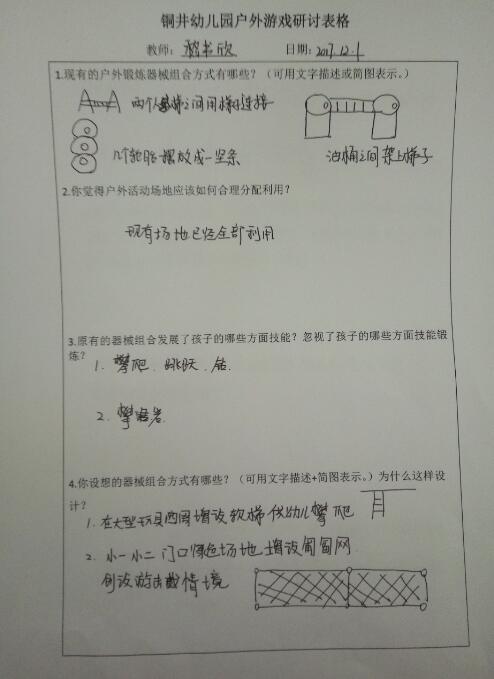 铜井幼儿园户外游戏研讨表格
教师： 日期：2017.12.1
1.现有的户外锻炼器械组合方式有哪些？（可用文字描述或简图表示。）
两个 梯之间用梯子连接
几个轮胎摆放成一竖条
油桶之间架上梯子
2.你觉得户外活动场地应该如何合理分配利用？
现有场地已经全部利用
3.原有的器械组合发展了孩子的哪些方面技能？忽视了孩子的哪些方面技能锻
炼？
1. 攀爬、跳跃、钻.
2. 攀岩
4.你设想的器械组合方式有哪些？（可用文字描述+简图表示。）为什么这样设
计？
1. 在大型玩具四周增设软梯供幼儿攀爬
2. 小一小二门口 色场地增设匍匐网
创设游击战情境